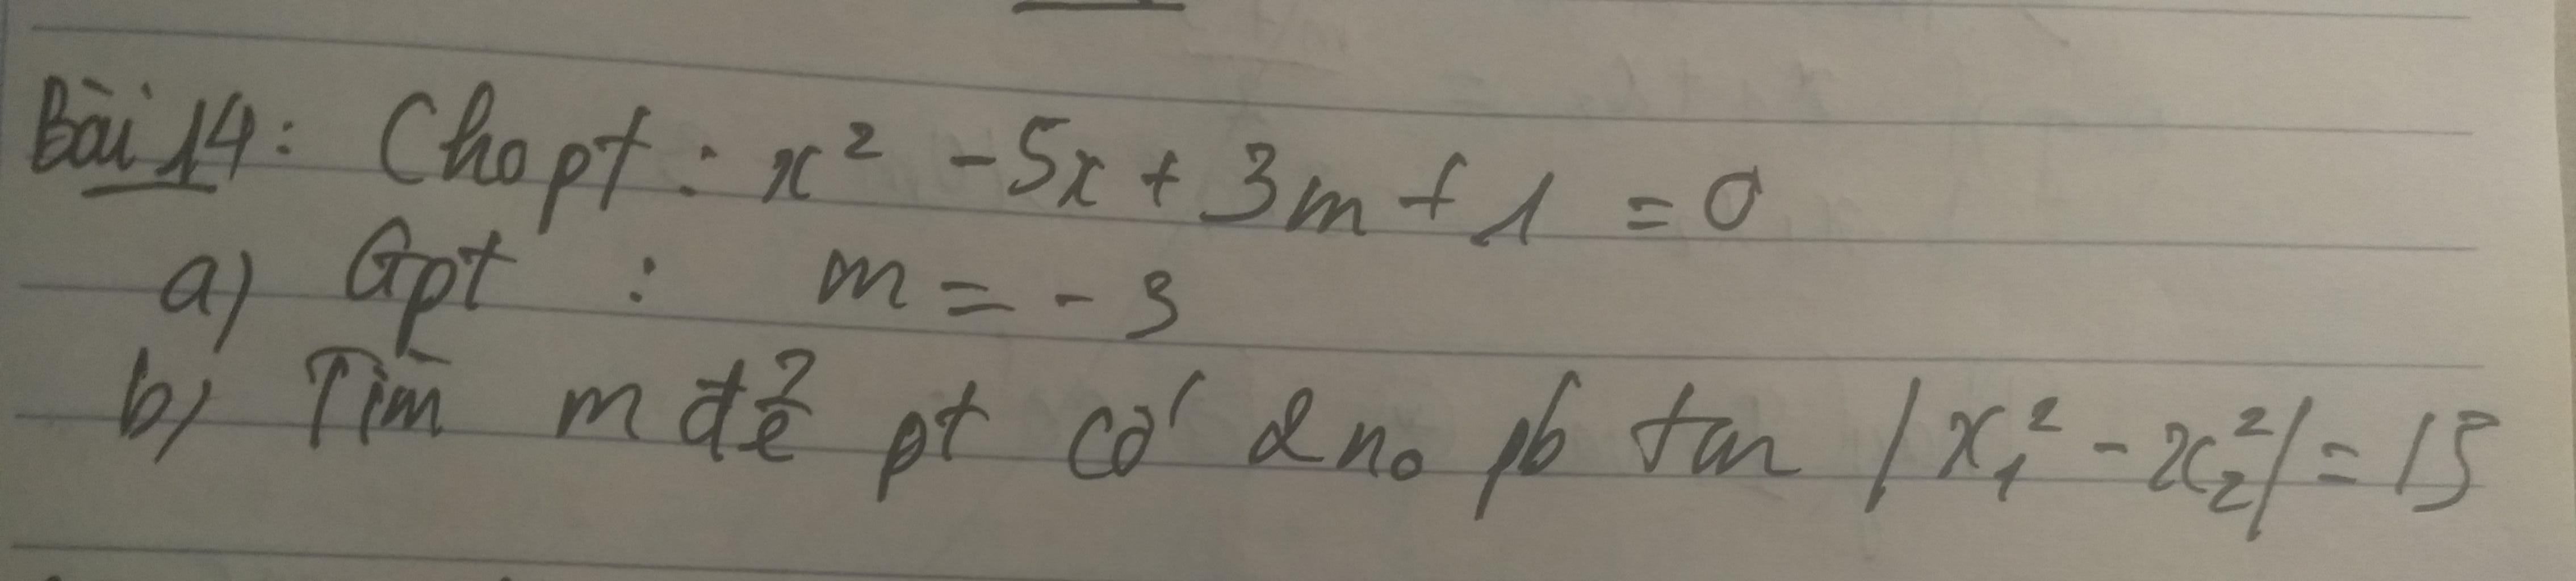 Bài 14: Cho pt: x² - 5x + 3m + 1 = 0
a) Gpt : m = - 3
b) Tìm m để pt có 2 no pb tm |x₁² - x₂²| = 15